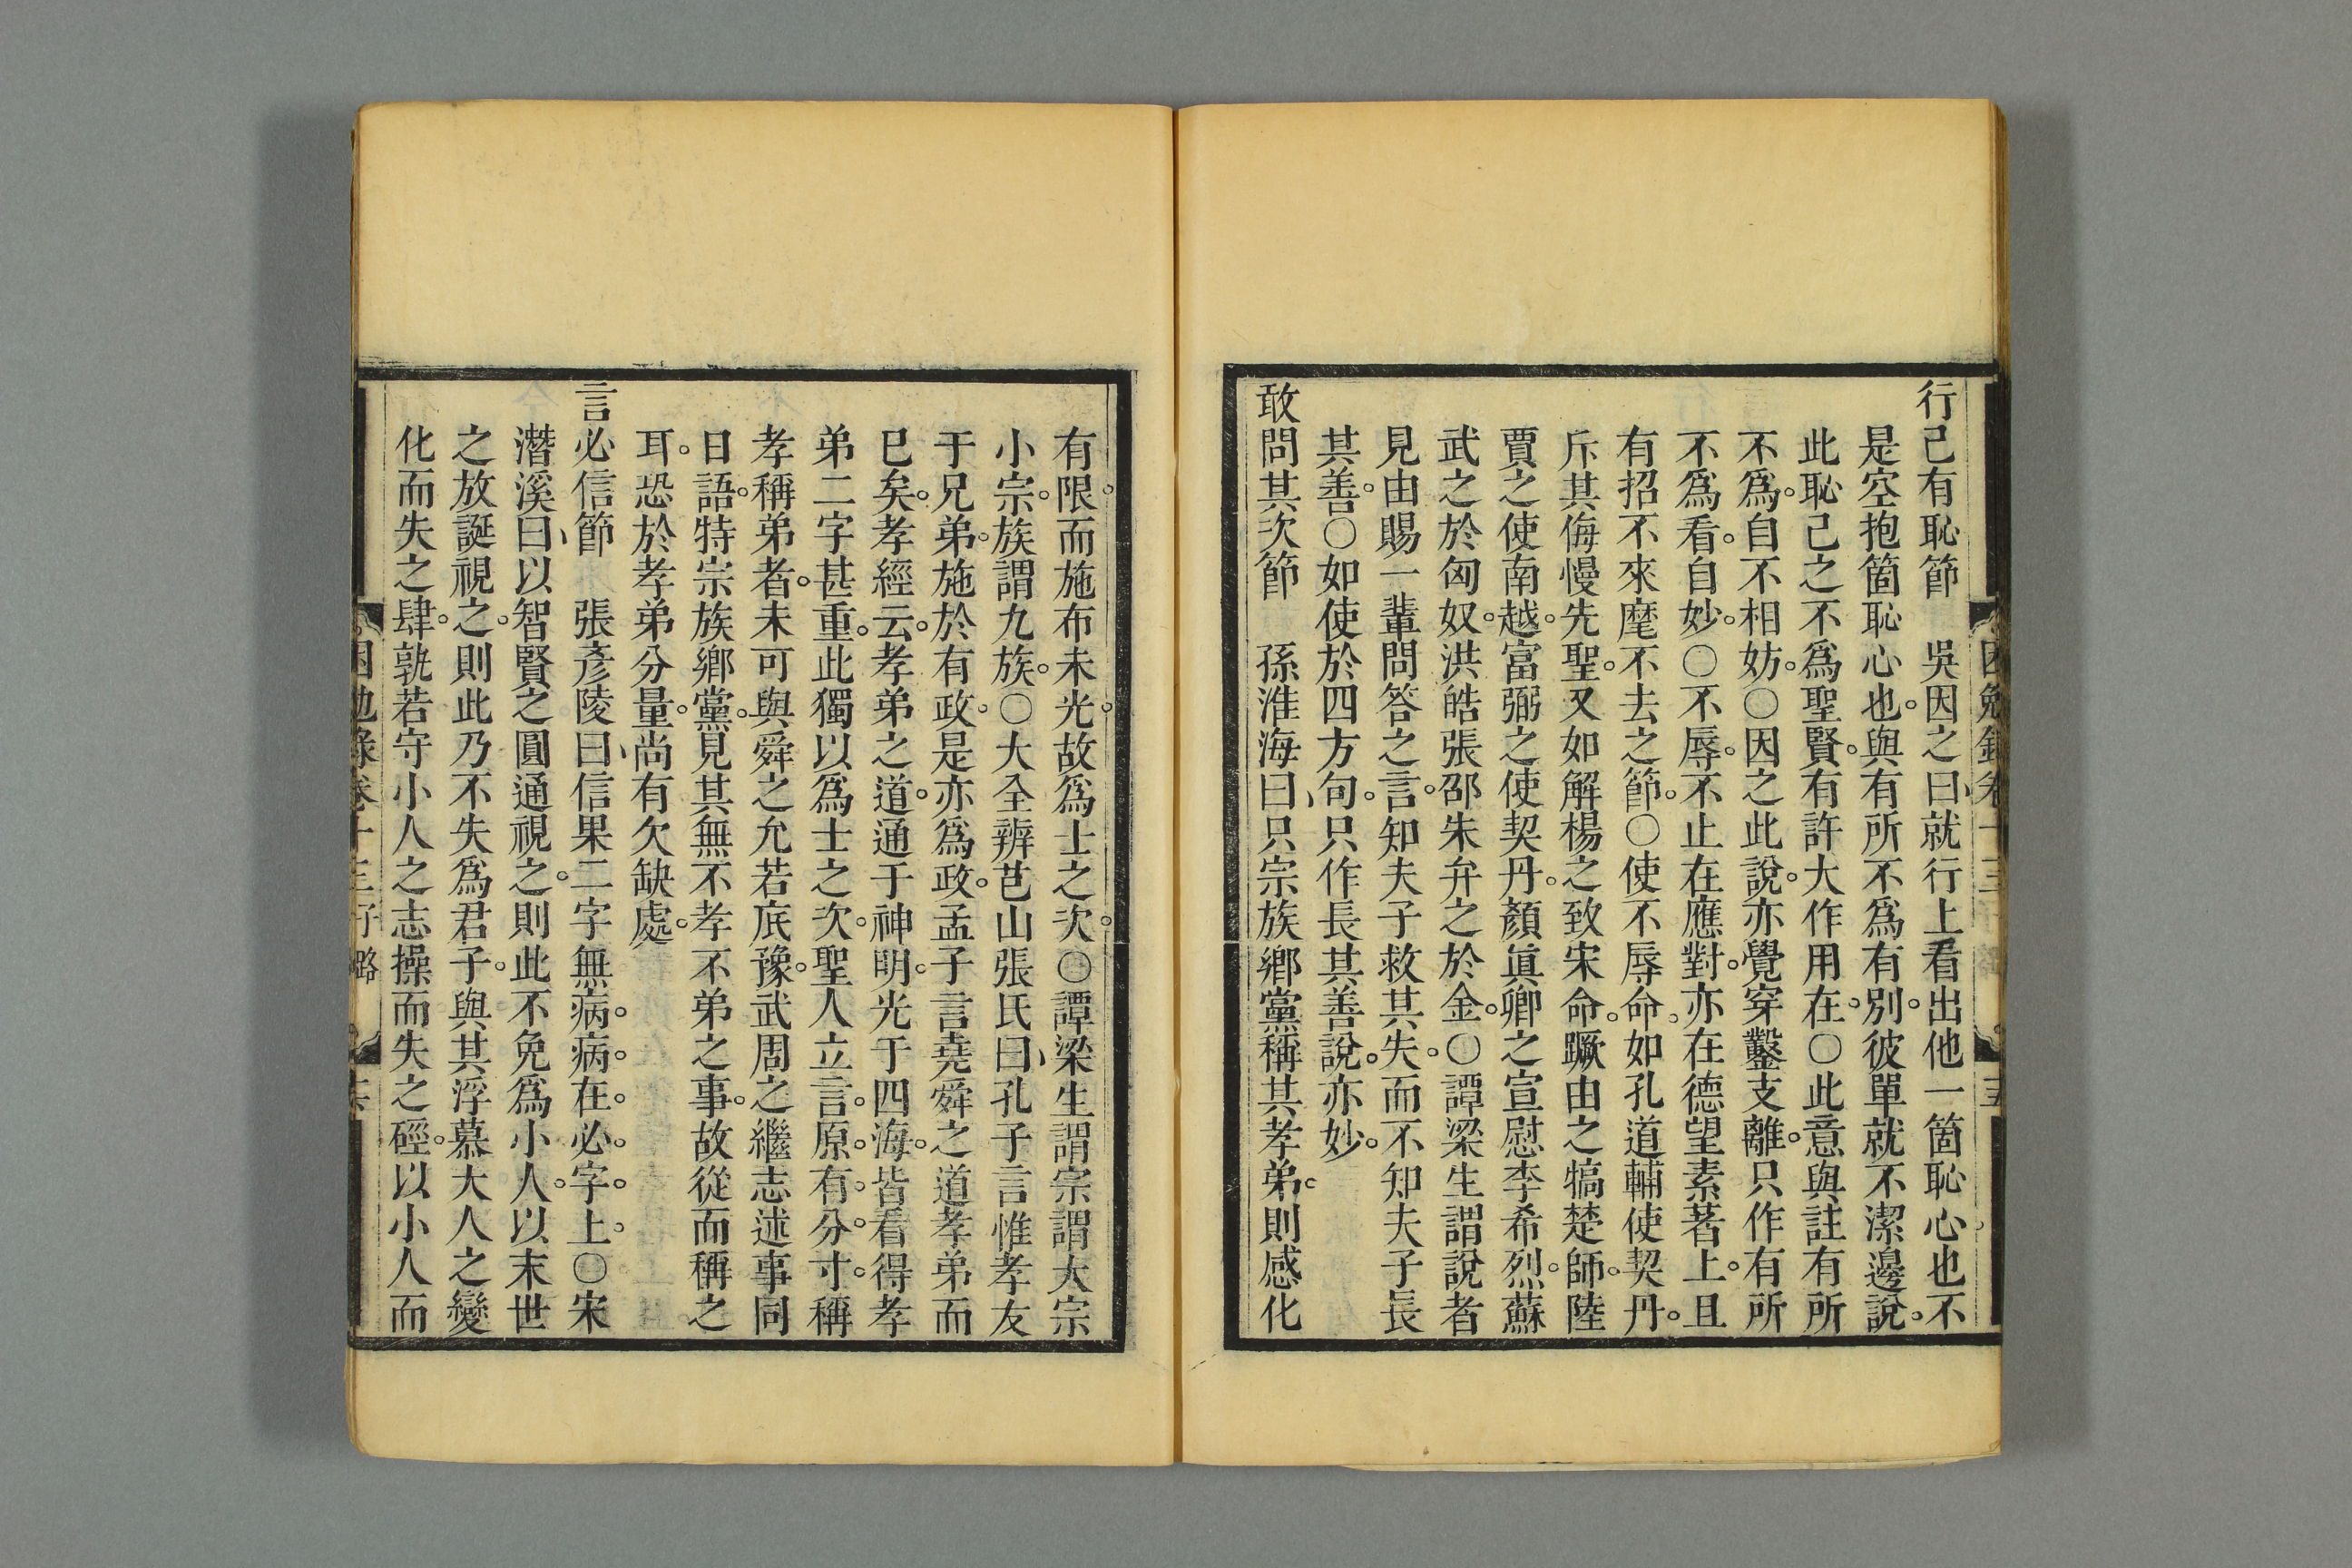 行己有恥節　吳因之曰就行上看出他一箇恥心也不
是空抱箇恥心也與有所不爲有別彼單就不潔邊說
此恥己之不爲聖賢有許大作用在○此意與註有所
不爲自不相妨○因之此說亦覺穿鑿支離只作有所
不爲看自妙○不辱不止在應對亦在德望素著上且
有招不來麾不去之節○使不辱命如孔道輔使契丹
斥其侮慢先聖又如解楊之致宋命蹶由之犒楚師陸
賈之使南越富弼之使契丹顏眞卿之宣慰李希烈蘇
武之於匈奴洪皓張邵朱弁之於金○譚梁生謂說者
見由賜一輩問答之言知夫子救其失而不知夫子長
其善○如使於四方句只作長其善說亦妙
敢問其次節　孫淮海曰只宗族鄉黨稱其孝弟則感化
有限而施布未光故爲士之次○譚梁生謂宗謂大宗
小宗族謂九族○大全辨芑山張氏曰孔子言惟孝友
于兄弟施於有政是亦爲政孟子言堯舜之道孝弟而
已矣孝經云孝弟之道通于神明光于四海皆看得孝
弟二字甚重此獨以爲士之次聖人立言原有分寸稱
孝稱弟者未可與舜之允若底豫武周之繼志述事同
日語特宗族鄉黨見其無不孝不弟之事故從而稱之
耳恐於孝弟分量尚有欠缺處
言必信節　張彥陵曰信果二字無病病在必字上○宋
潛溪曰以智賢之圓通視之則此不免爲小人以末世
之放誕視之則此乃不失爲君子與其浮慕大人之變
化而失之肆孰若守小人之志操而失之硜以小人而
困勉錄卷十三子路